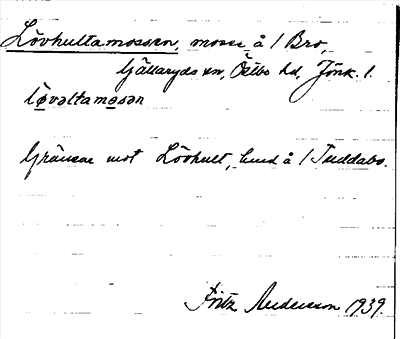 Lövhultamossen, mosse å 1 Bro,
Gällaryds sn, Östbo hd, Jönk. l.
lövəltamosən
Gränsar mot Lövhult, hmd å 1 Tuddabo.
Fritz Andersson 1939.